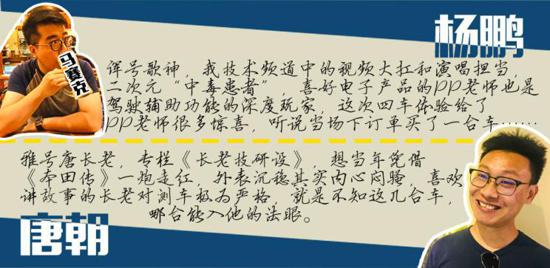 杨鹏
马赛克
诨号歌神，我技术频道中的视频大扛和演唱担当，
二次元“中毒患者”，喜好电子产品的PP老师也是
驾驶辅助功能的深度玩家，这次四车体验给了
PP老师很多惊喜，听说当场下订单买了一台车……
雅号唐长老，专栏《长老技研设》，想当年凭借
《本田传》一炮走红，外表沉稳其实内心闷骚，喜欢
讲故事的长老对测车极为严格，就是不知这几台车，
哪台能入他的法眼。
唐朝